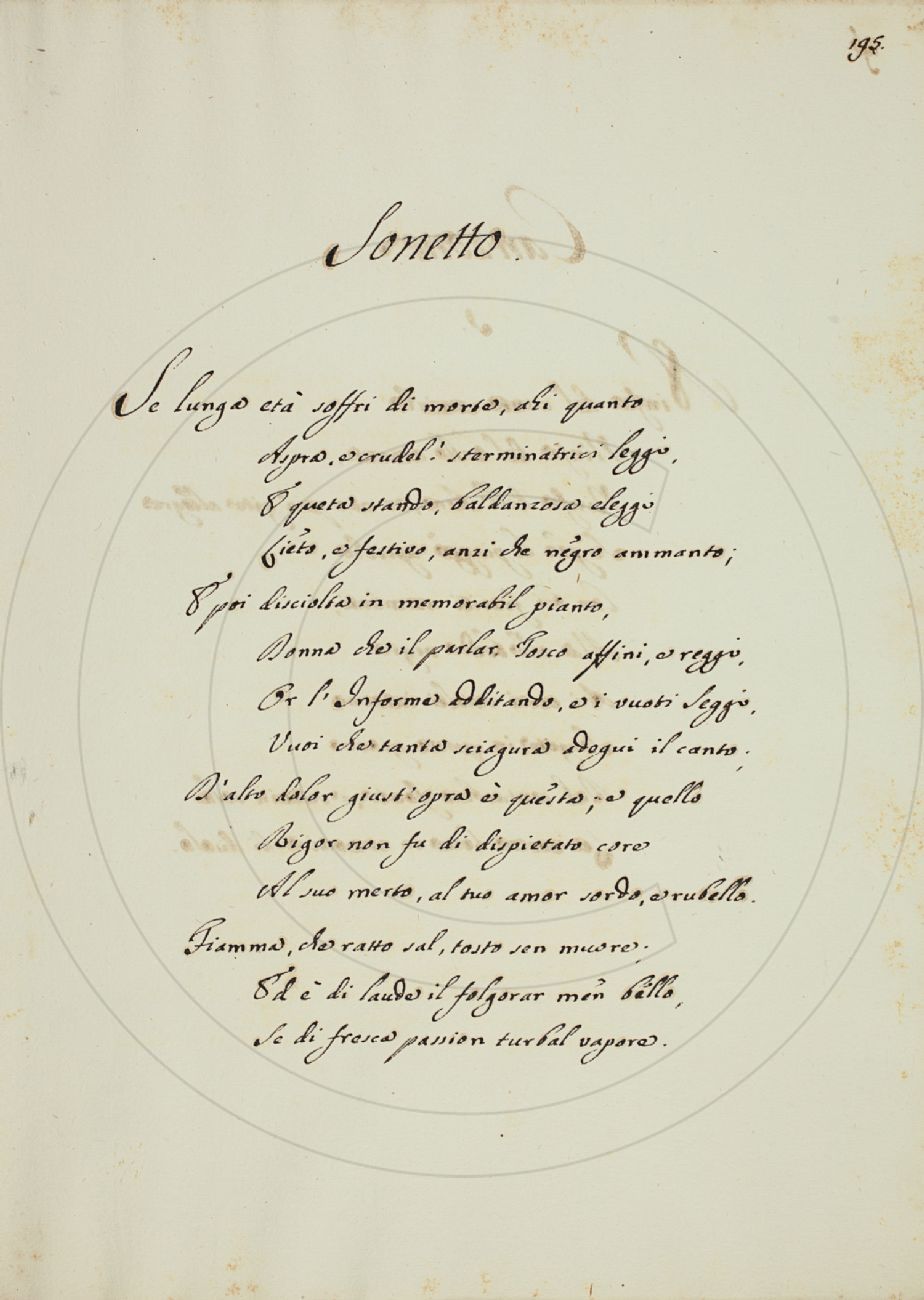 195.
Sonetto.
Se lunga età soffri di morte, ahi quanto
Aspra, e crudel! sterminatrici leggi,
E queta stando, baldanzosa eleggi
Lieto, e festivo, anzi che negro ammanto;
E poi disciolta in memorabil pianto,
Donna che il parlar Tosco affini, e reggi,
Or l'Inferme additando, e i vuoti seggi,
Vuoi che tanta sciagura adegui il canto;
D'alto dolor giust'opra è questa; e quello
Rigor non fu di dispietato core
Al suo merto, al tuo amor sordo, e rubello.
Fiamma, che ratto sal, tosto sen muore;
Ed è di laude il folgorar men bello,
Se di fresca passion turbal vapore.